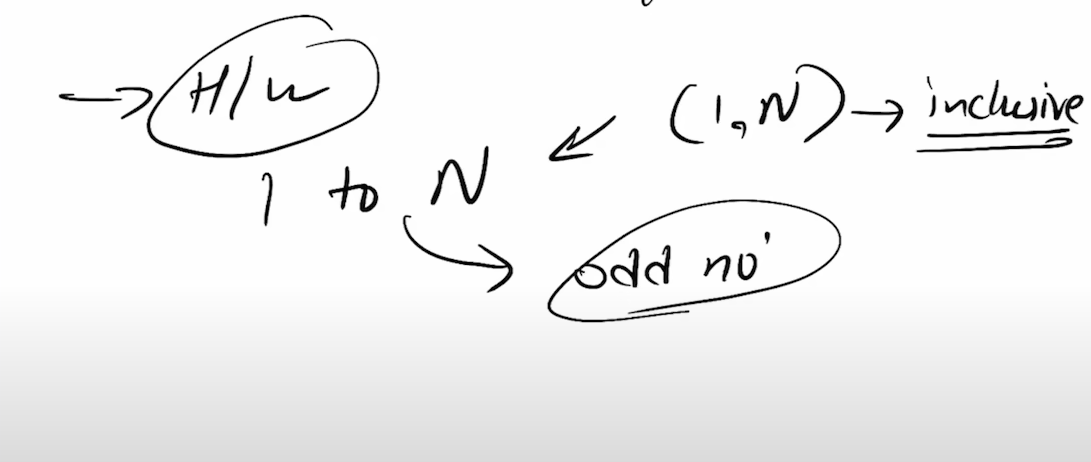 → H/W
(1,N) → inclusive
1 to N
odd no'